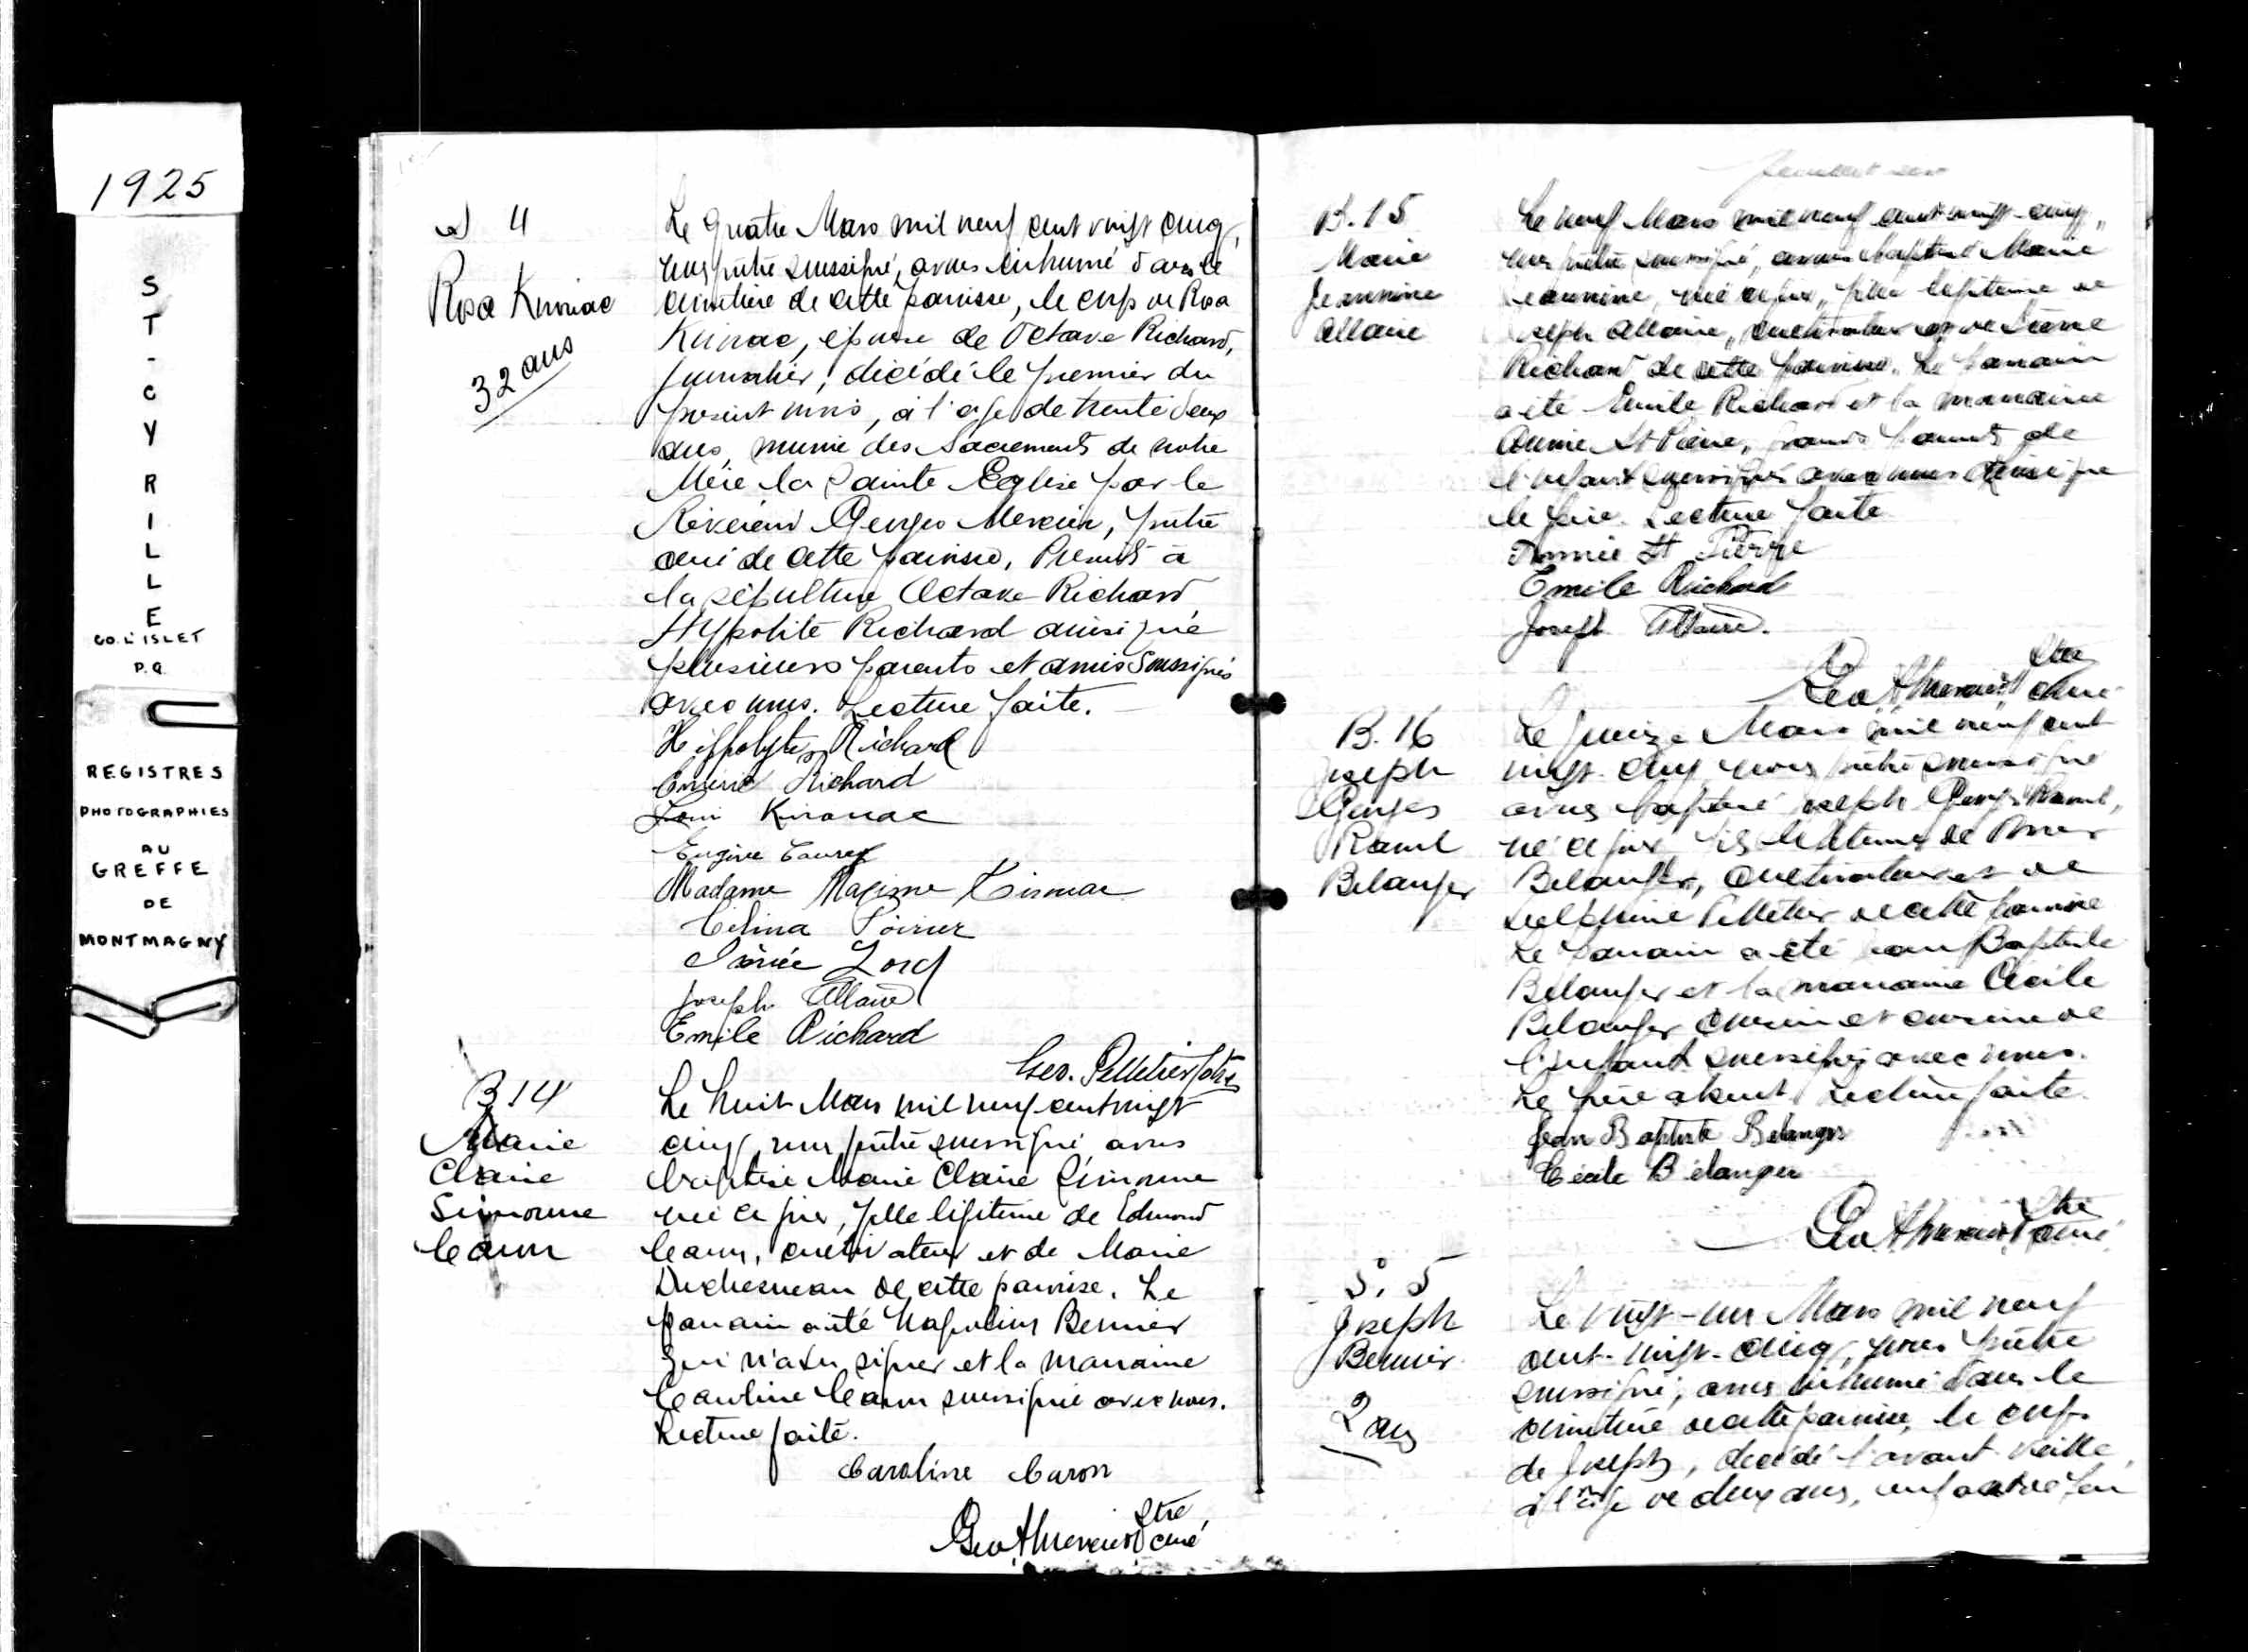 1925
ST-CYRILLE
CO. L'ISLET
P.Q.
REGISTRES
PHOTOGRAPHIES
AU
GREFFE
DE
MONTMAGNY
S 4
Rosa Kirouac
32 ans
Le quatre Mars mil neuf cent vingt cinq,
nous prêtre soussigné, avons inhumé dans le
cimetière de cette paroisse, le corps de Rosa
Kirouac, épouse de Octave Richard,
journalier, décédé le premier du
présent mois, à l'age de trente deux
ans, munie des Sacrements de notre
Mère la Sainte Eglise par le
Révérend Georges Mercier, prêtre
curé de cette paroisse. Présents à
la sépulture Octave Richard,
Hypolite Richard ainsi que
plusieurs parents et amis soussignés
avec nous. Lecture faite.
Hippolyte Richard
Richard
Kirouac
Madame Maxime Kirouac
Célina Poirier
Lord
Joseph Allaire
Emile Richard
Geo. Pelletier ptre
B 14
Marie
Claire
Simonne
Caron
Le huit Mars mil neuf cent vingt
cinq, nous prêtre soussigné avons
baptisé Marie Claire Simonne
née ce jour, fille légitime de Edmond
Caron, cultivateur et de Marie
Duchesneau de cette paroisse. Le
parrain a été Napoléon Bernier
qui n'a su signer et la marraine
Caroline Caron soussignée avec nous.
Lecture faite.
Caroline Caron
Geo. A Mercier Ptre curé
B. 15
Marie
Jeannine
Allaire
Le neuf Mars mil neuf cent vingt-cinq,
nous prêtre soussigné, avons baptisé Marie
Jeannine, née ce jour, fille légitime de
Joseph Allaire, cultivateur et de
Richard de cette paroisse. Le parrain
a été Emile Richard et la marraine
Annie St Pierre, grands parents de
l'enfant soussignés avec nous ainsi que
le père. Lecture faite
Annie St Pierre
Emile Richard
Joseph Allaire.
Geo A Mercier Ptre curé
B. 16
Joseph
Georges
Raoul
Belanger
Le quinze Mars mil neuf cent
vingt-cinq nous prêtre soussigné
avons baptisé Joseph Georges Raoul,
né ce jour fils légitime de
Belanger, cultivateur et de
Delphine Pelletier de cette paroisse
Le parrain a été Jean Baptiste
Belanger et la marraine Cécile
Belanger cousin et cousine de
l'enfant soussignés avec nous.
Le père absent. Lecture faite.
Jean Baptiste Belanger
Cécile Bélanger
Geo A Mercier Ptre curé
S. 5
Joseph
Bernier
2 ans
Le vingt-un Mars mil neuf
cent-vingt-cinq, nous prêtre
soussigné, avons inhumé dans le
cimetière de cette paroisse, le corps
de Joseph, décédé l'avant-veille,
à l'age de deux ans, enfant de feu